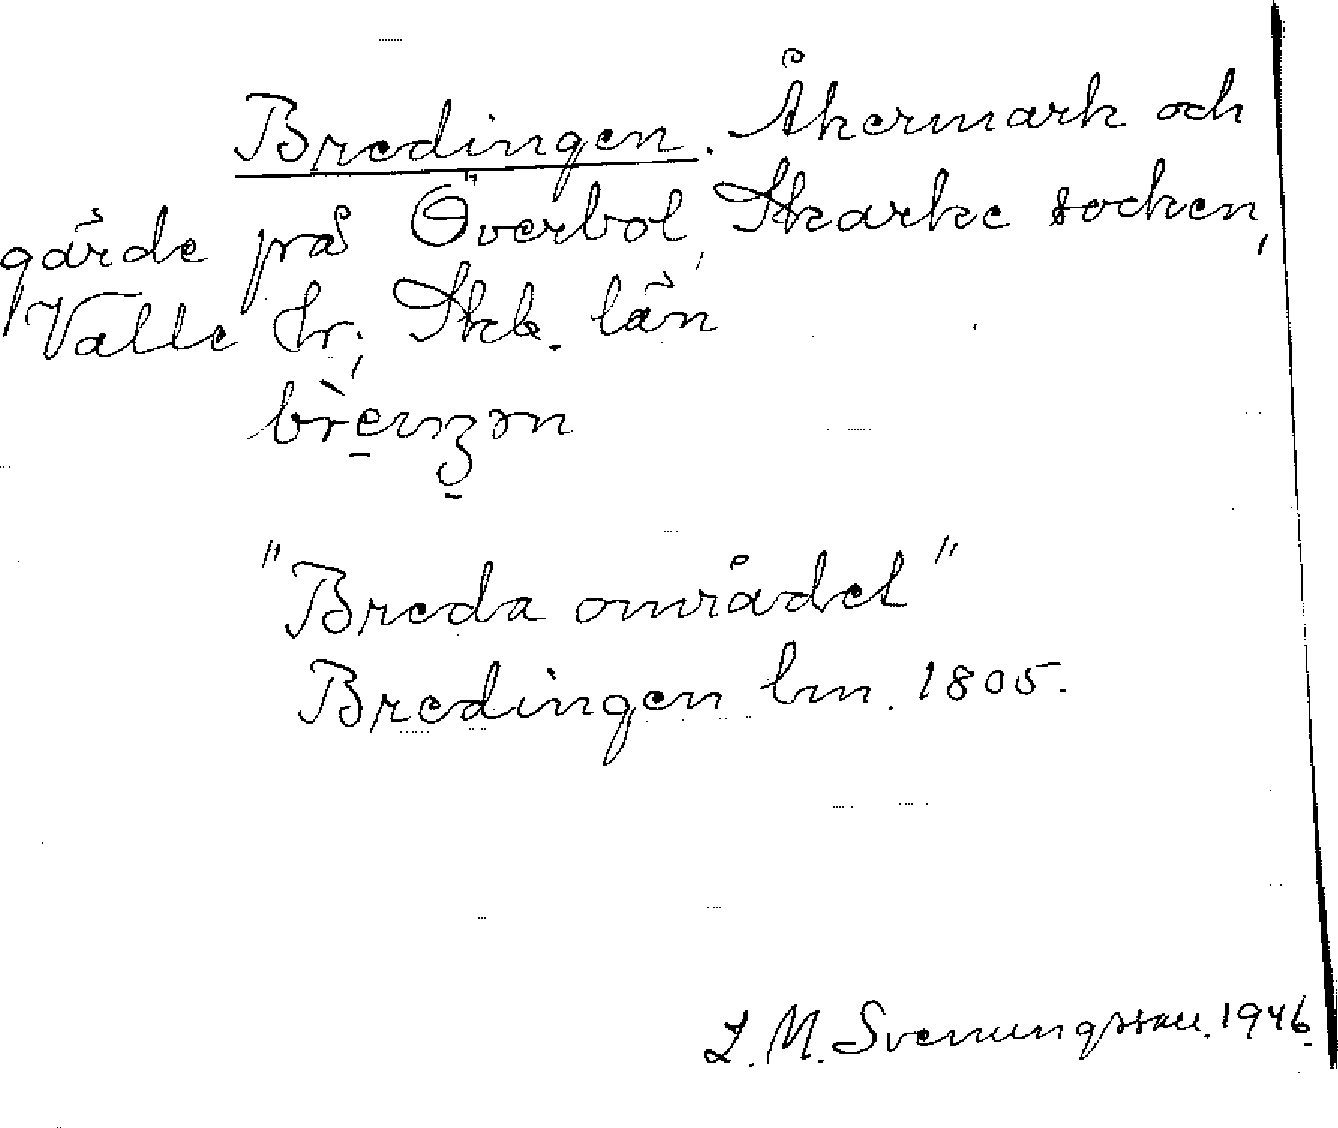 Bredingen. Åkermark och
gärde på Överbol, Skarke socken,
Valle hr; Skb. län

"Breda området"
Bredingen lm. 1805.
L. M. Svenungsson. 1946.